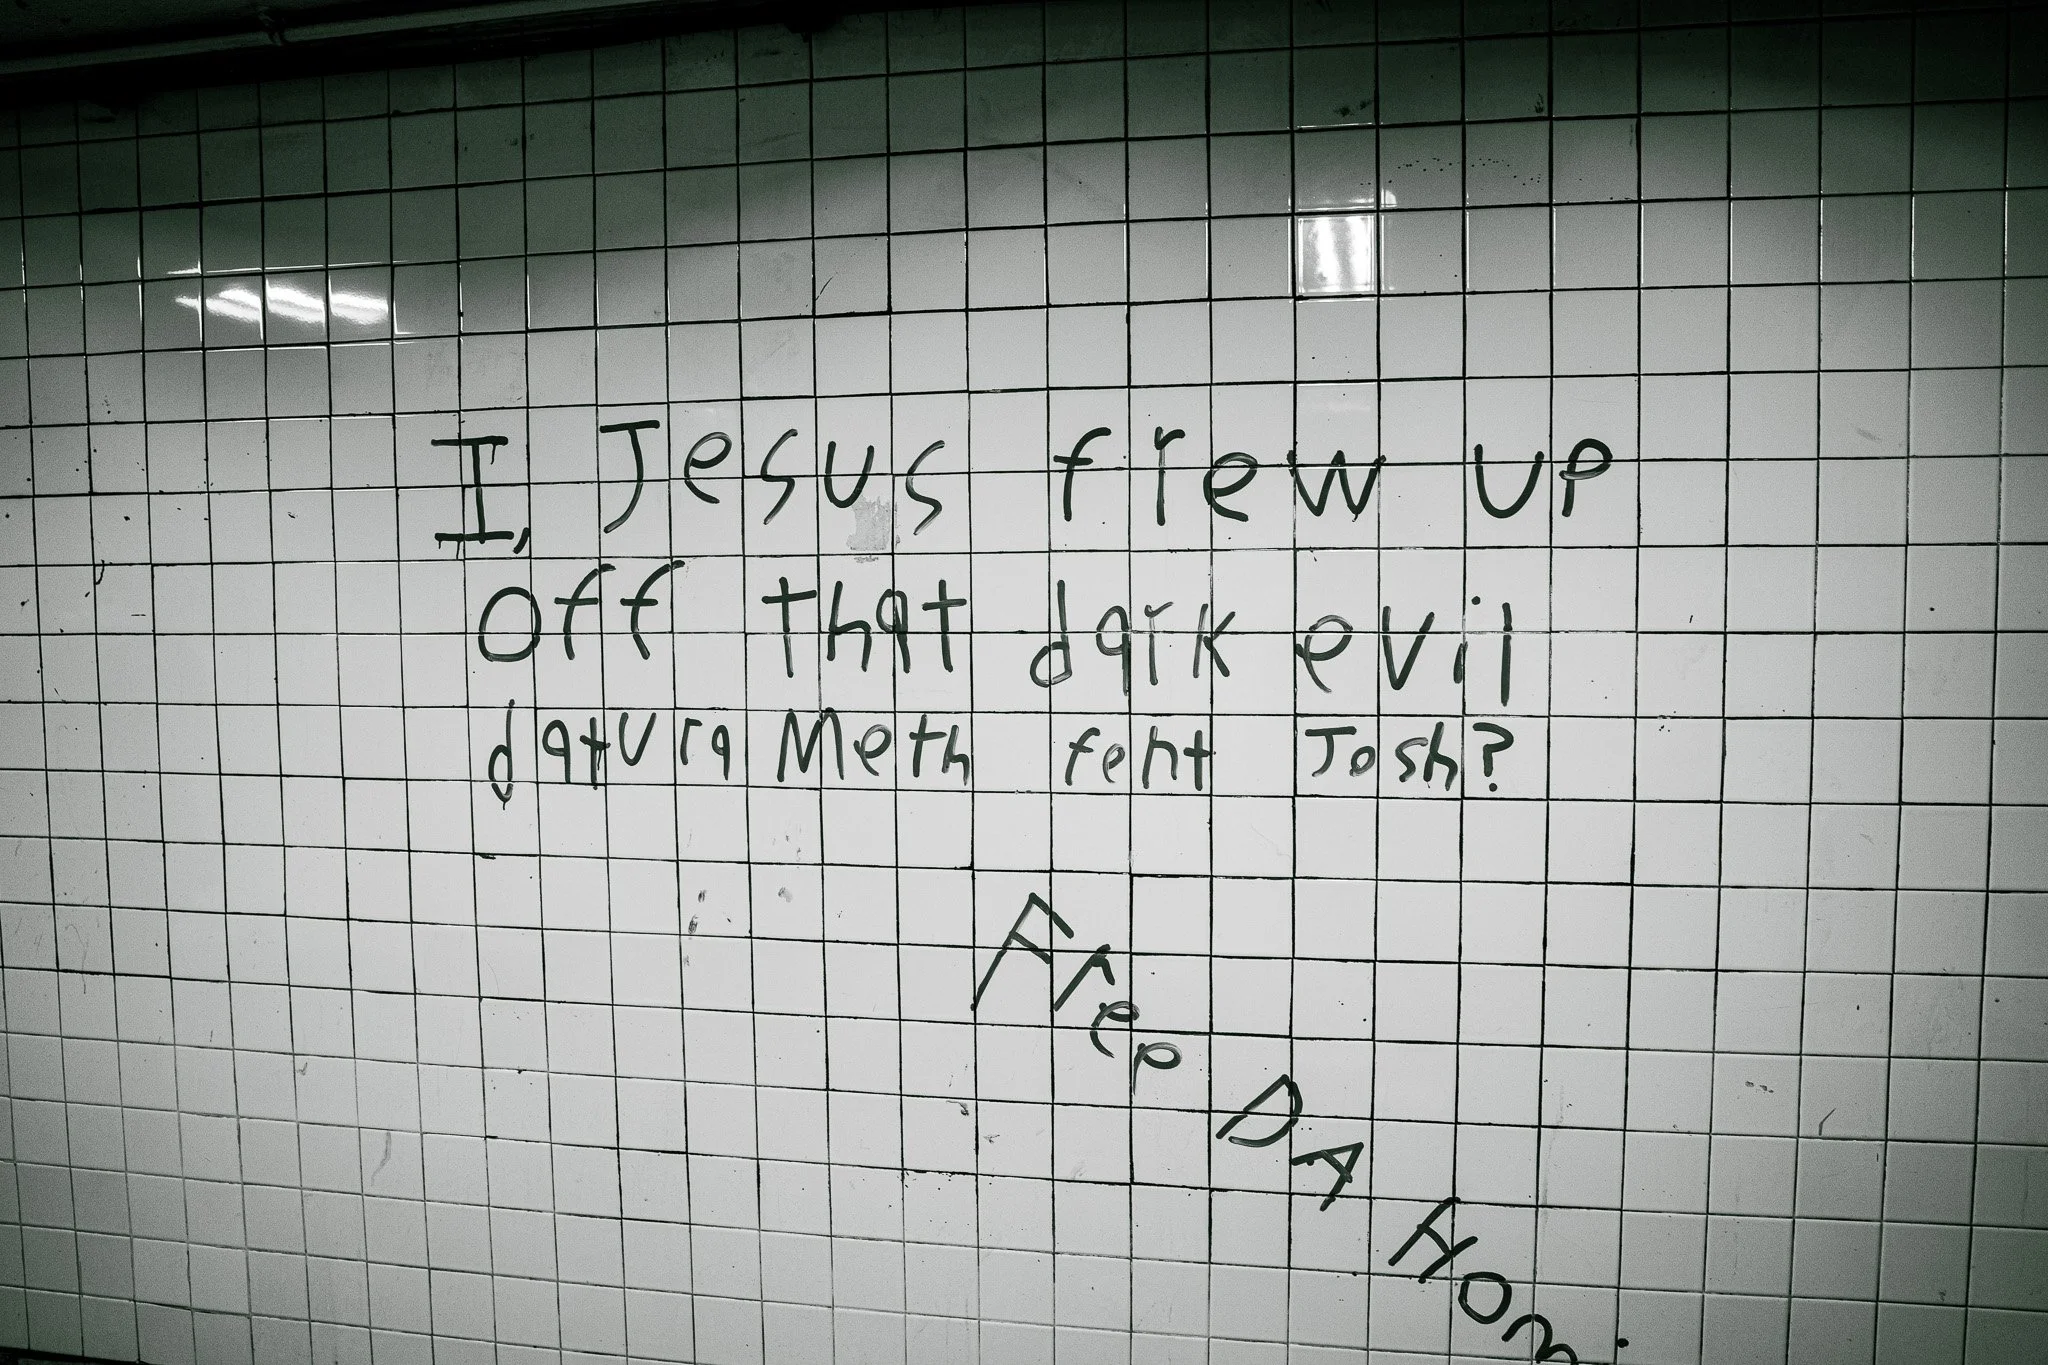 I, Jesus frew up
off that dark evil
datura Meth fent Josh?
Free DA Hom